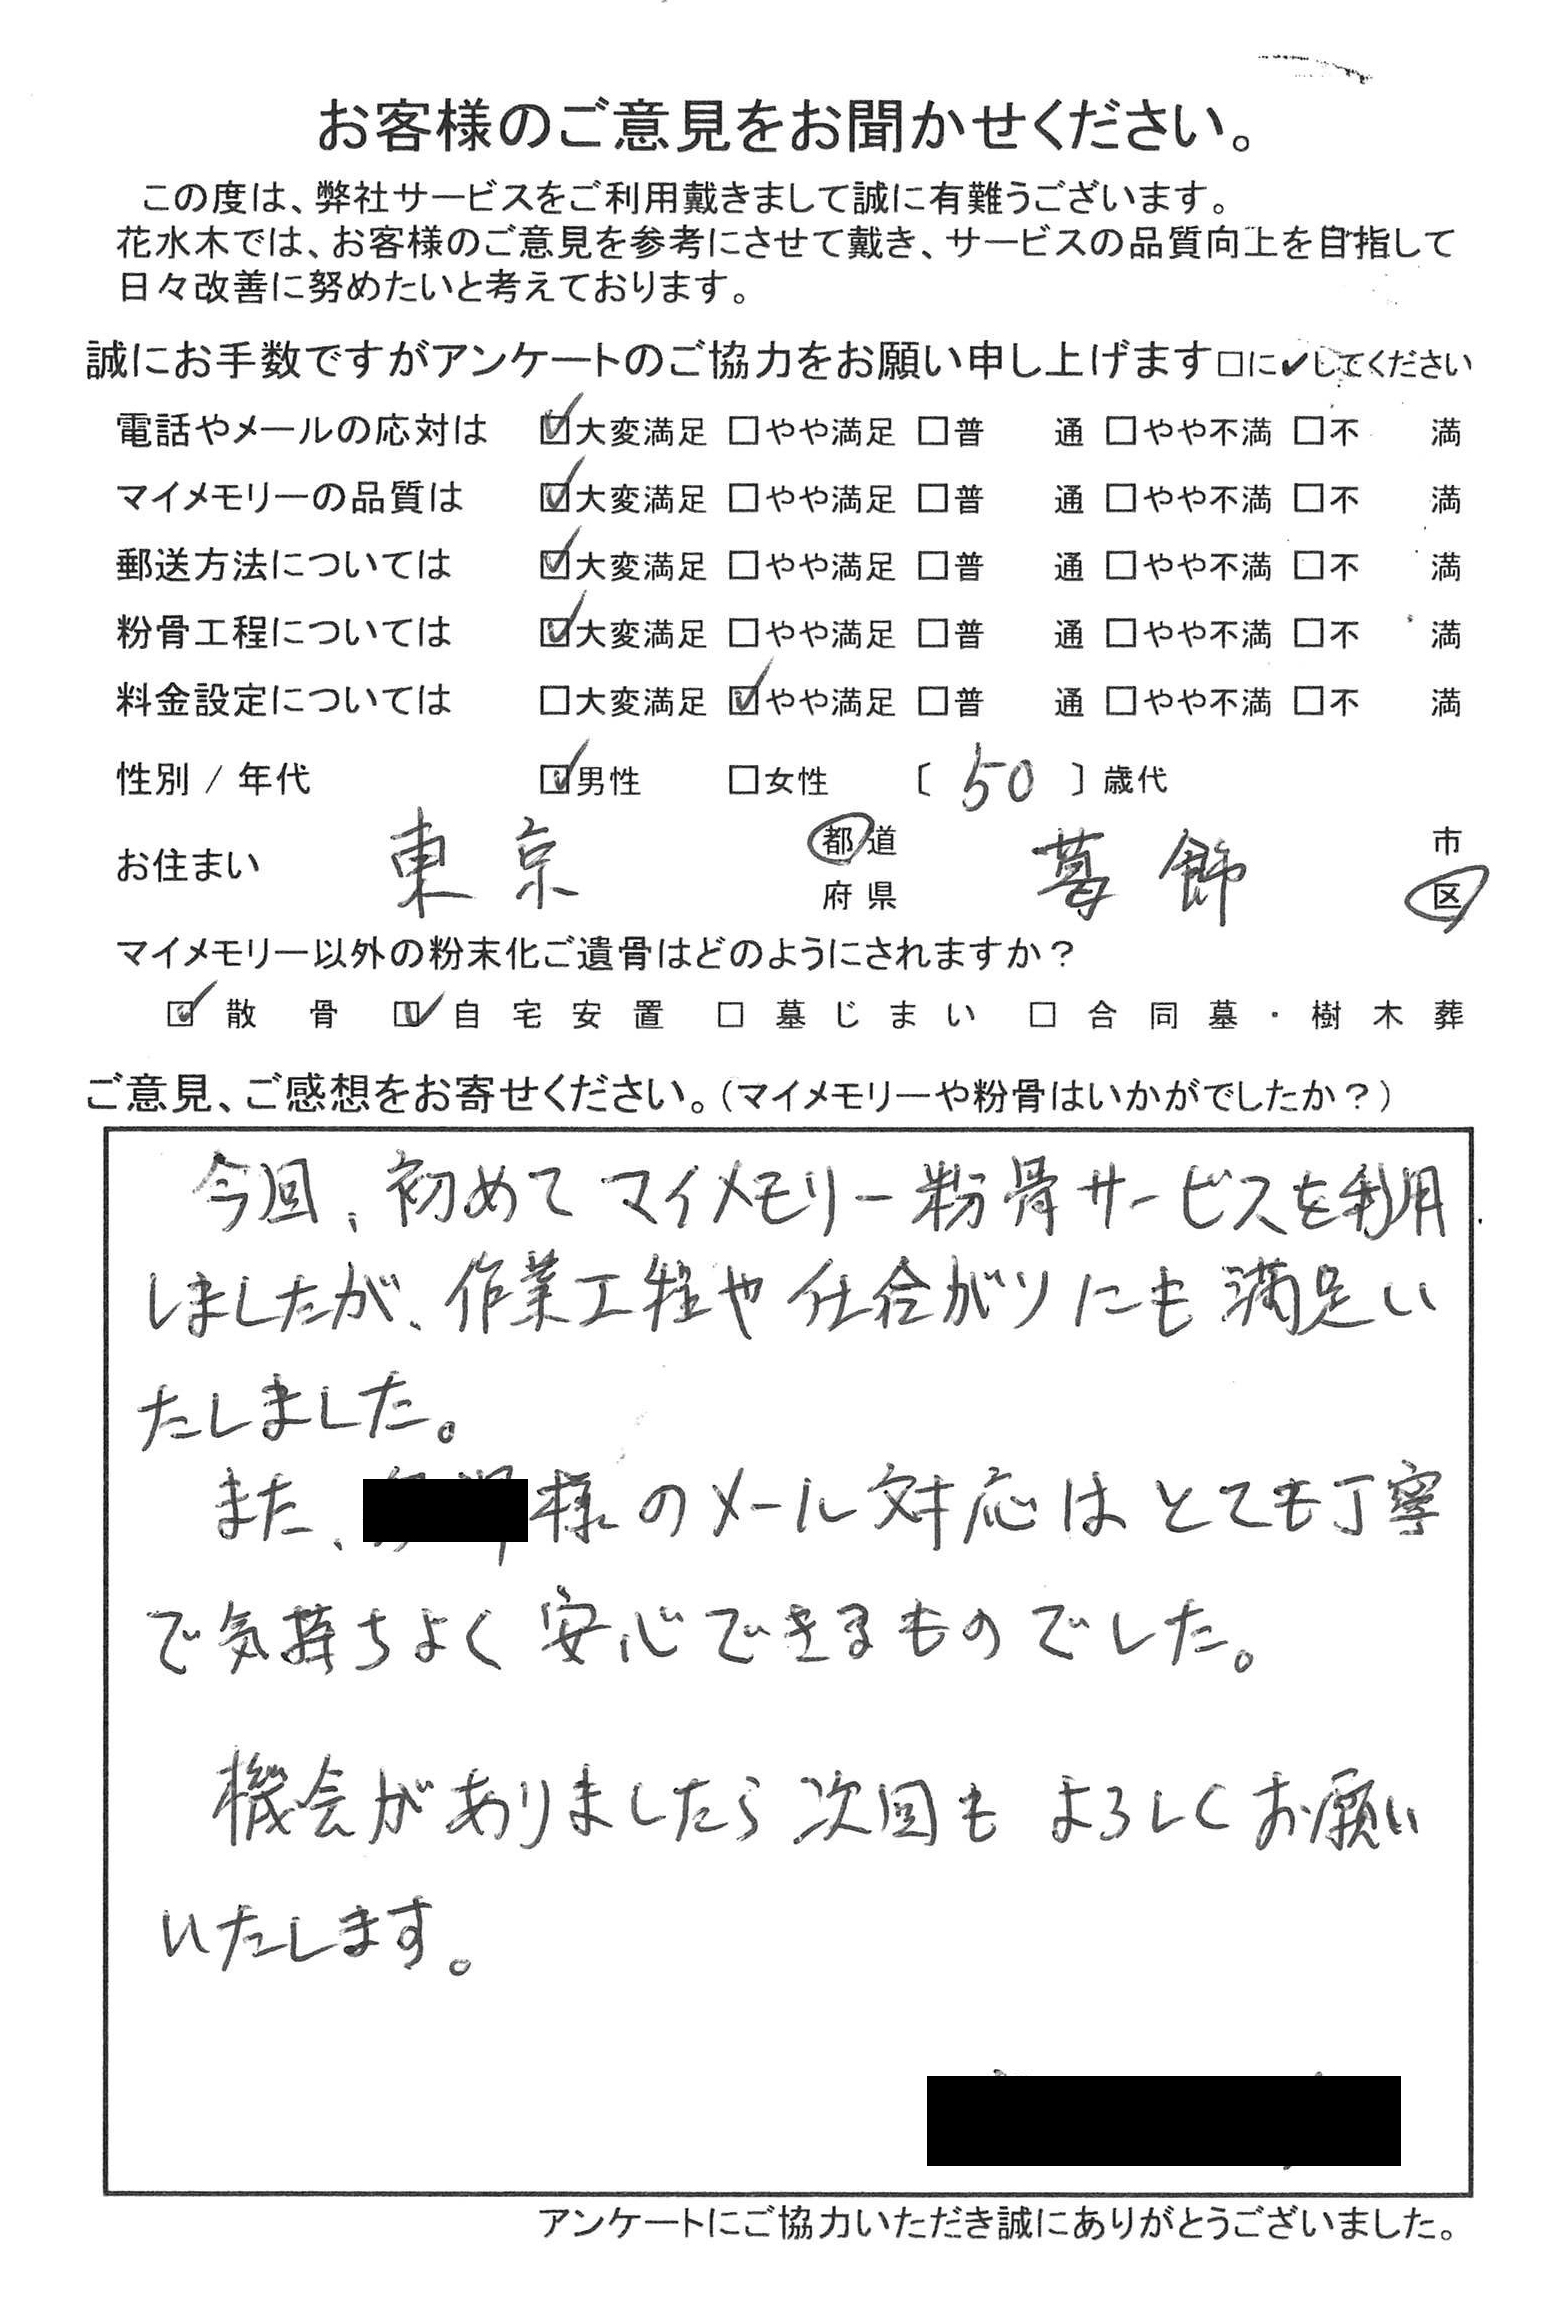 お客様のご意見をお聞かせください。
この度は、弊社サービスをご利用戴きまして誠に有難うございます。
花水木では、お客様のご意見を参考にさせて戴き、サービスの品質向上を目指して
日々改善に努めたいと考えております。
誠にお手数ですがアンケートのご協力をお願い申し上げます□に✔してください
電話やメールの応対は ☑大変満足 □やや満足 □普 通 □やや不満 □不 満
マイメモリーの品質は ☑大変満足 □やや満足 □普 通 □やや不満 □不 満
郵送方法については ☑大変満足 □やや満足 □普 通 □やや不満 □不 満
粉骨工程については ☑大変満足 □やや満足 □普 通 □やや不満 □不 満
料金設定については □大変満足 ☑やや満足 □普 通 □やや不満 □不 満
性別 / 年代 ☑男性 □女性 〔 50 〕歳代
お住まい 東京 都道府県 葛飾 市区
マイメモリー以外の粉末化ご遺骨はどのようにされますか?
☑ 散骨 ☑ 自宅安置 □ 墓じまい □ 合同墓・樹木葬
ご意見、ご感想をお寄せください。(マイメモリーや粉骨はいかがでしたか?)
今回、初めてマイメモリー粉骨サービスを利用
しましたが、作業工程や仕合がりにも満足い
たしました。
また、様のメール対応はとても丁寧
で気持ちよく安心できるものでした。
機会がありましたら次回もよろしくお願い
いたします。
アンケートにご協力いただき誠にありがとうございました。